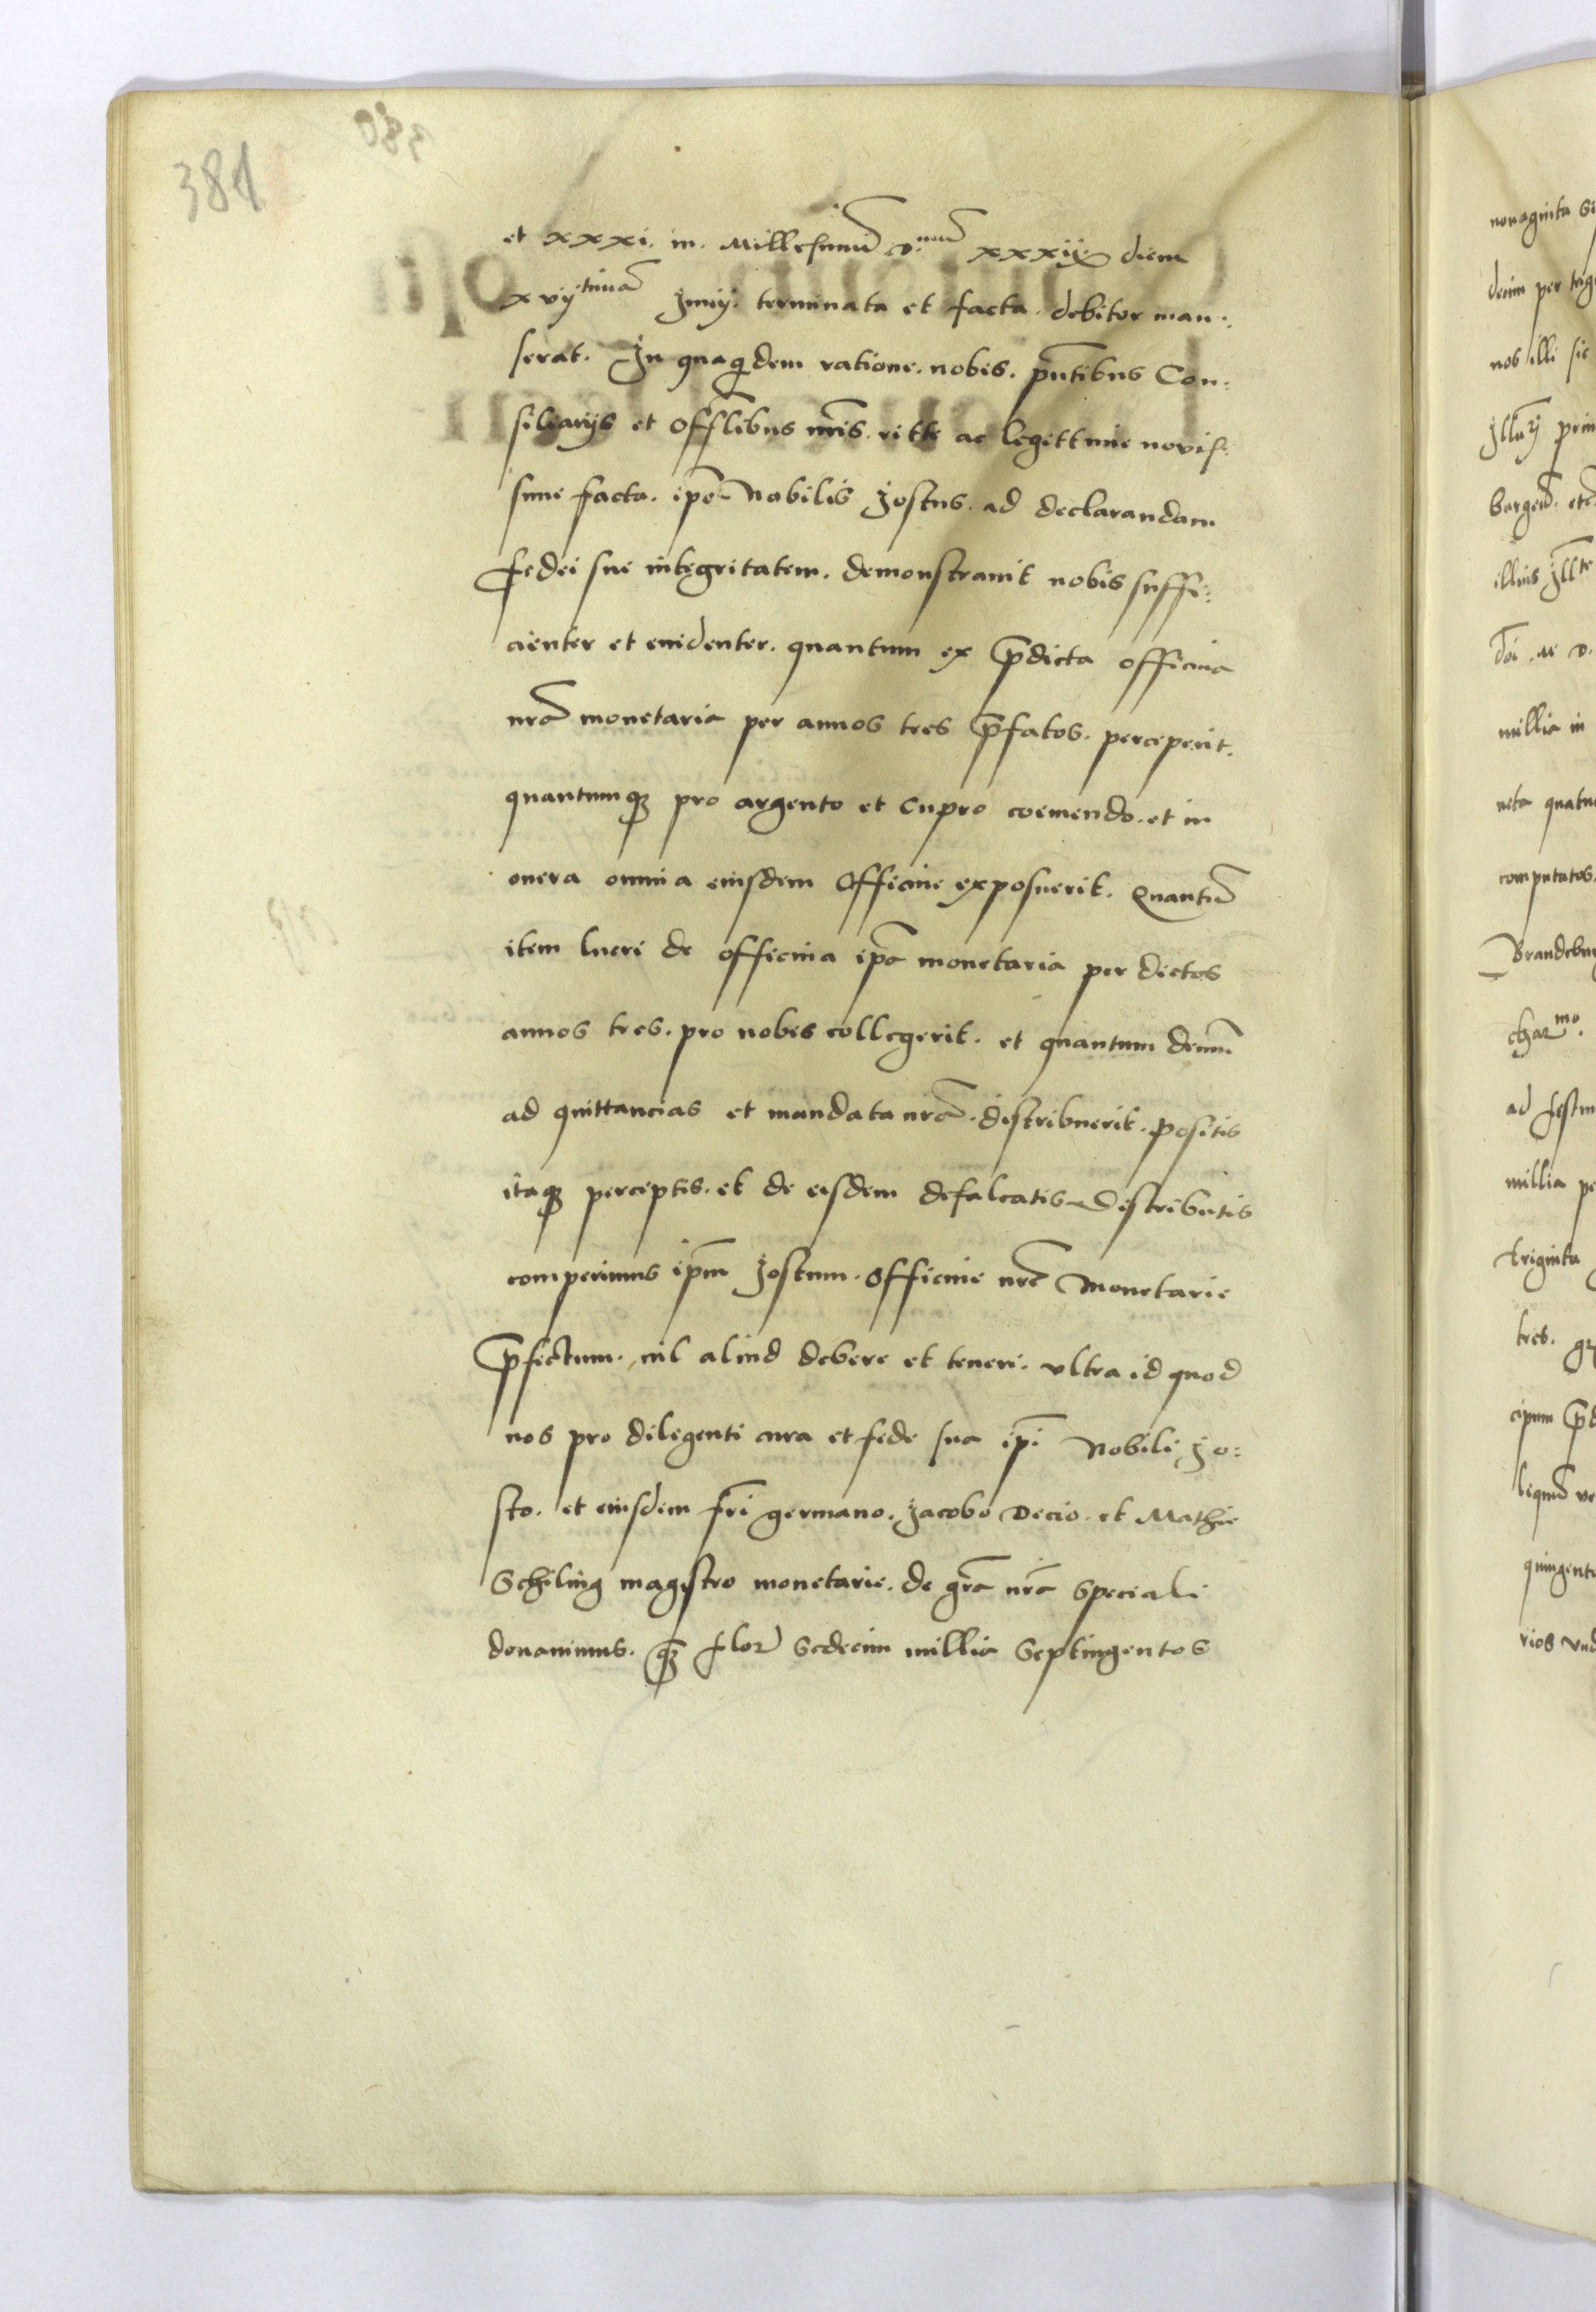 381
et xxxi. in. Millesimũ d.num xxxiij diem
xvijtimã Junij. terminata et facta. debitor man:
serat. In quaquidem ratione. nobis. pñtibus Con:
siliarijs et offlibus nris. ritte ac legittime novis:
sime facta. ipse Nobilis Jostus. ad declarandam
fidei sue integritatem. demonstravit nobis suffi:
cienter et evidenter. quantum ex p̃dicta officina
nrã monetaria per annos tres p̃fatos. perceperit.
quantumqʒ pro argento et cupro coemendo. et in
onera omnia eiusdem Officine exposuerit. Quantũ
item lucri de officina ipã monetaria per dictos
annos tres. pro nobis collegerit. et quantum demũ
ad quittancias et mandata nrã. distribuerit. positis
itaqʒ perceptis. et de eisdem defalcatis distributis
comperimus ipm̃ Jostum. Officine nrẽ Monetarie
p̃fectum. nil aliud debere et teneri. ultra id quod
nos pro diligenti cura et fide sua ipĩ Nobili Jo:
sto. et eiusdem frĩ germano. Jacobo Decio. et Mathie
Schiling magistro monetarie. de grã nrã speciali
donavimus. qʒ flor sedecim millia septingentos
nonaginta
decim per
nos illi sic
illius
millia in
neta
computatos.
ad festu
millia
triginta
tres.